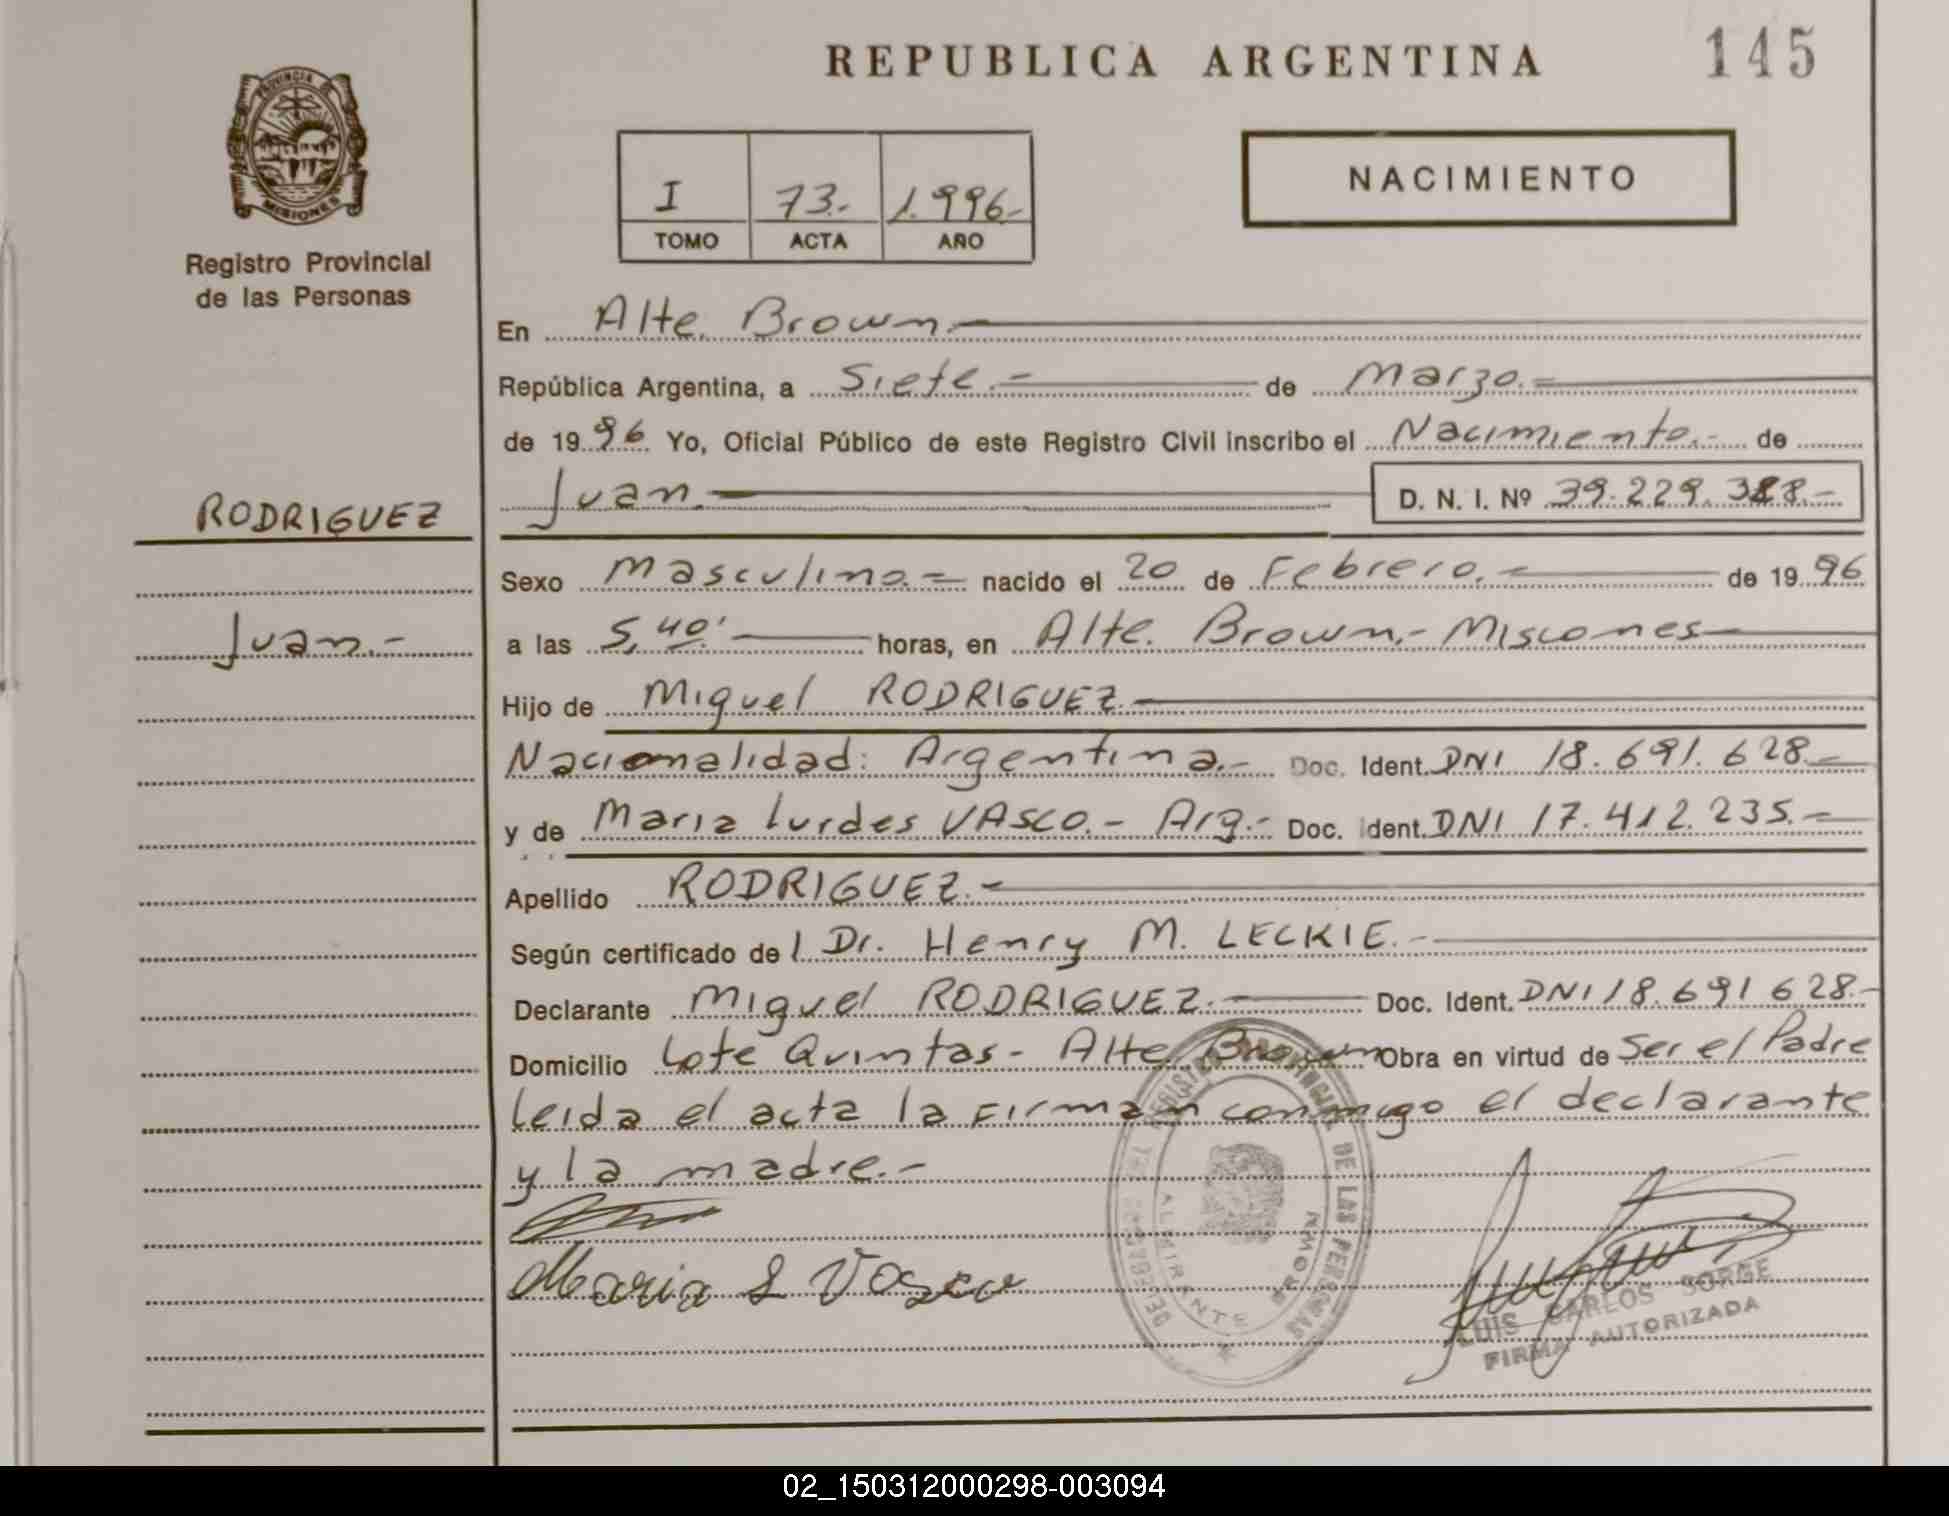 REPUBLICA ARGENTINA
145
PROVINCIA DE
MISIONES
Registro Provincial
de las Personas
I 73.- 1.996.-
TOMO ACTA AÑO
NACIMIENTO
En Alte. Brown.-
República Argentina, a Siete.- de Marzo.-
de 1996 Yo, Oficial Público de este Registro Civil inscribo el Nacimiento.- de
RODRIGUEZ
Juan.-
Juan.- D. N. I. Nº 39.229.
Sexo Masculino.- nacido el 20 de Febrero.- de 1996
a las 5,40' horas, en Alte. Brown.- Misiones
Hijo de Miguel RODRIGUEZ.-
Nacionalidad: Argentina.- Doc. Ident. DNI 18.691.628.-
y de Maria Lurdes VASCO.- Arg.- Doc. Ident. DNI 17.412.235.-
Apellido RODRIGUEZ.-
Según certificado de l Dr. Henry M. LECKIE.-
Declarante Miguel RODRIGUEZ.- Doc. Ident. DNI 18.691 628.-
Domicilio Lote Quintas- Alte. Brown Obra en virtud de Ser el Padre
Leida el acta la Firman conmigo el declarante
y la madre.-
Maria L Vasco
REGISTRO PROVINCIAL DE LAS PERSONAS
ALMIRANTE BROWN
LUIS CARLOS SORGE
FIRMA AUTORIZADA
02_150312000298-003094